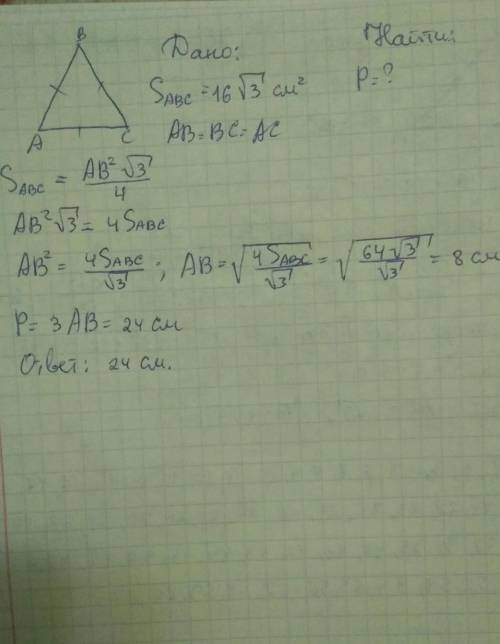 B
A
C
Дано:
S_ABC = 16√3 см²
AB = BC = AC
Найти:
P = ?
S_ABC = AB²√3 / 4
AB²√3 = 4S_ABC
AB² = 4S_ABC / √3 ; AB = √(4S_ABC / √3) = √(64√3 / √3) = 8 см
P = 3AB = 24 см
Ответ: 24 см.